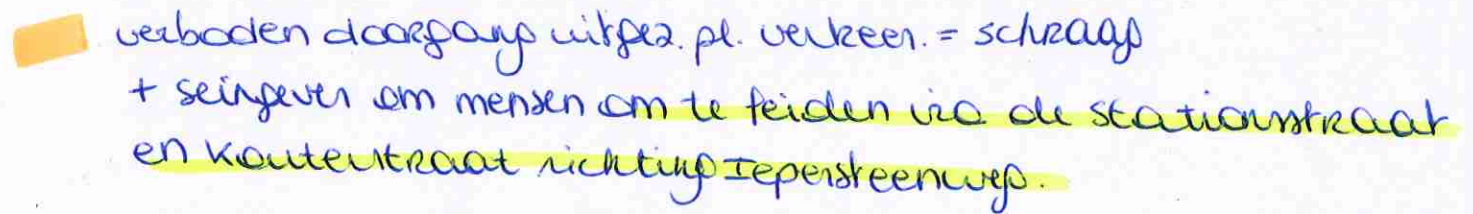 verboden doorgang uitgez. pl. verkeer. = schraag
+ seingever om mensen om te leiden via de stationsstraat
en Kouterstraat richting Iepersteenweg.